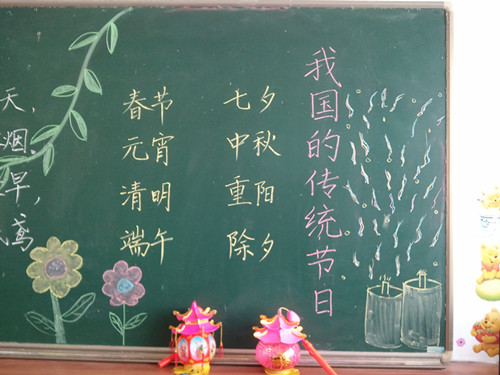 我国的传统节日
春节 七夕
元宵 中秋
清明 重阳
端午 除夕
天，
烟。
早，
鸢